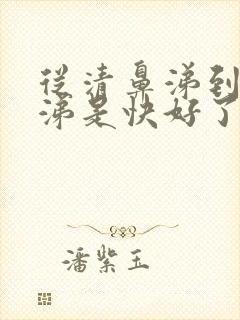 从清鼻涕到
涕是快好了
潘紫玉